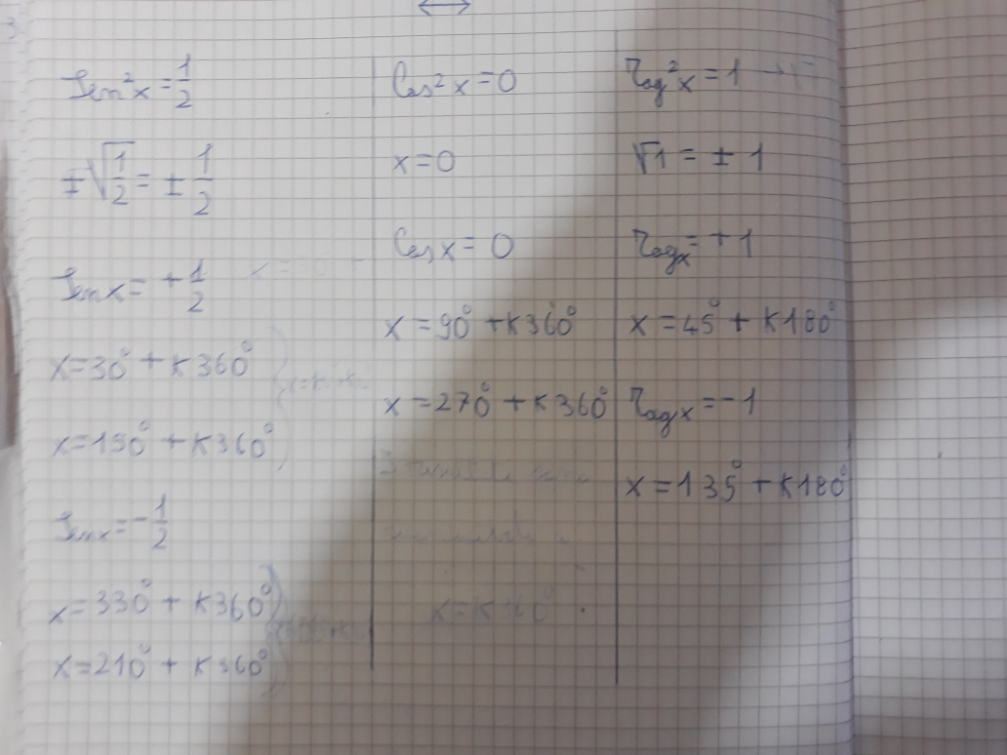 Sen²x = 1/2
±√1/2 = ± 1/2
Sen x = + 1/2
x = 30° + K360°
x = 150° + K360°
Sen x = - 1/2
x = 330° + K360°
x = 210° + K360°
Cos²x = 0
x = 0
Cos x = 0
x = 90° + K360°
x = 270° + K360°
x = K360°
Tag²x = 1
√1 = ± 1
Tag x = + 1
x = 45° + K180°
Tag x = - 1
x = 135° + K180°